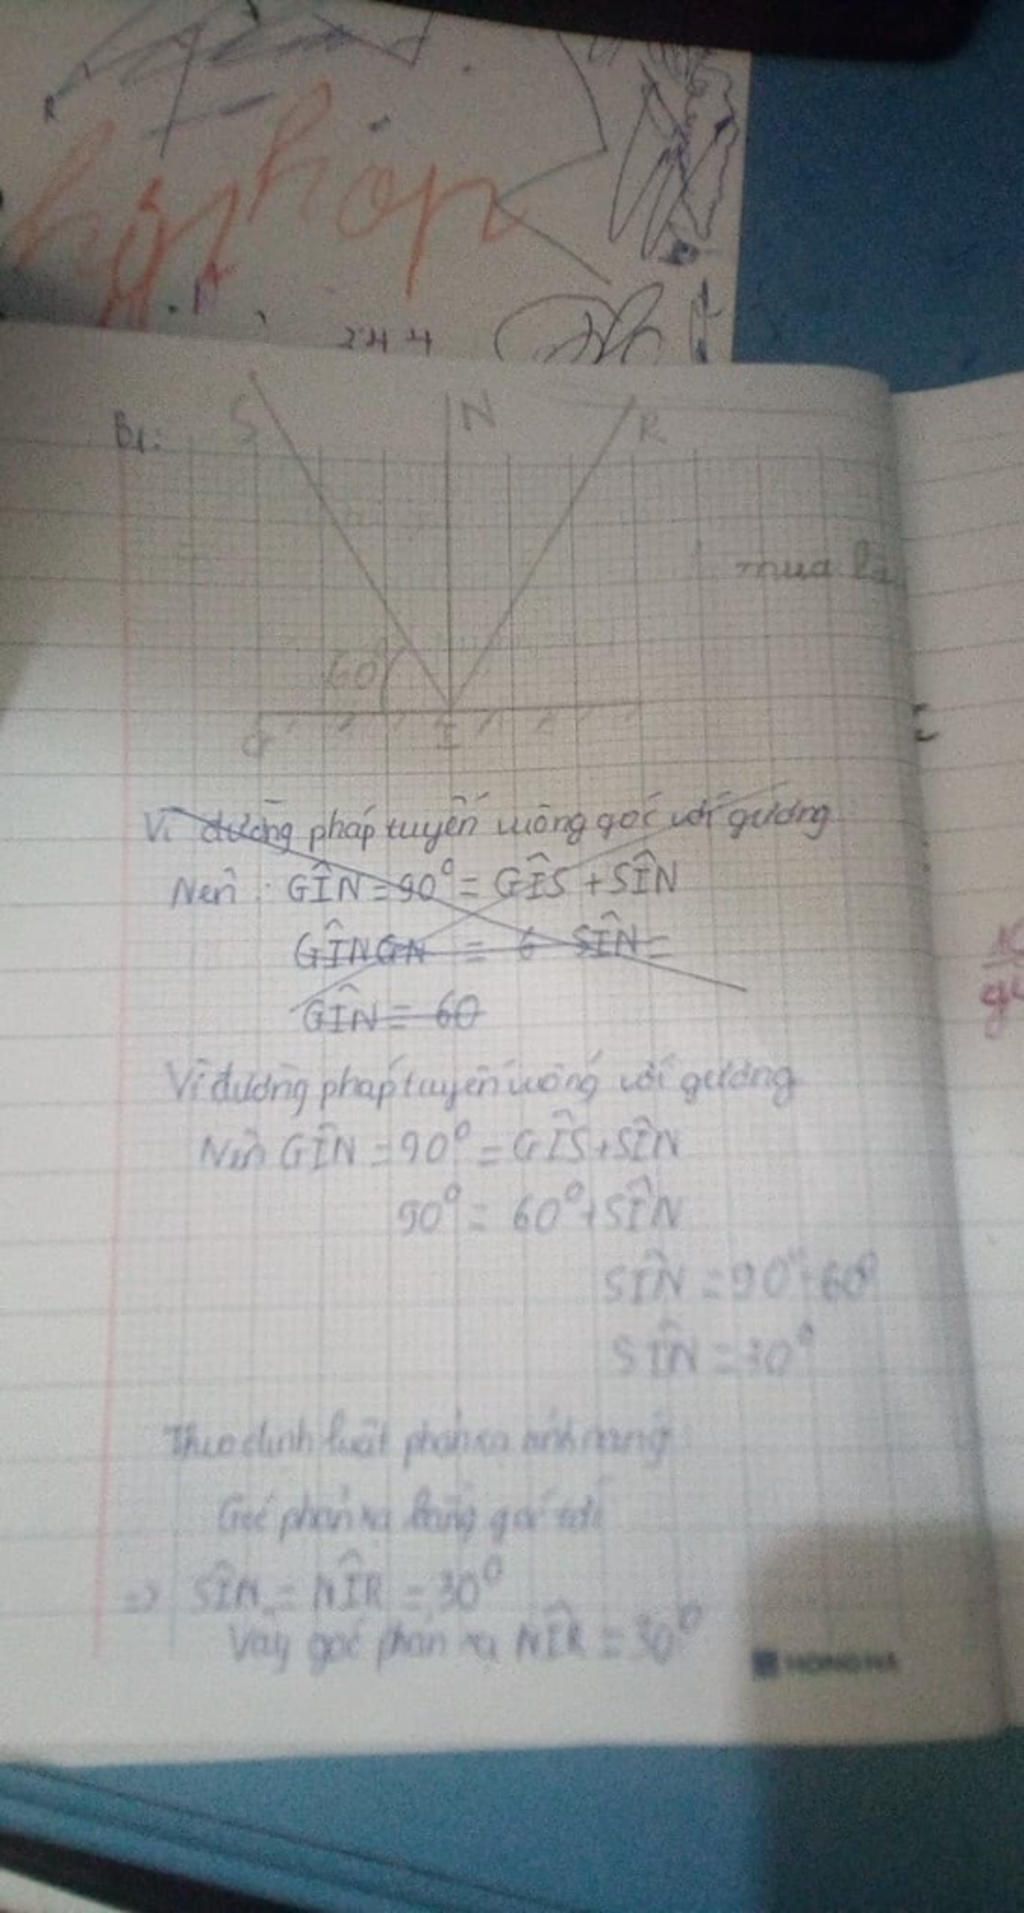 hợp
244
B1:
S N R
mua
60°
G I
Vì đường pháp tuyến vuông góc với gương
Nên : GÎN = 90° = GÎS + SÎN
GÎNGN = 6 SÎN =
GÎN = 60
Vì đường pháp tuyến vuông với gương
Nên GÎN = 90° = GÎS + SÎN
90° = 60° + SÎN
SÎN = 90° - 60°
SÎN = 30°
Theo định luật phản xạ ánh sáng
Góc phản xạ bằng góc tới
=> SÎN = NÎR = 30°
Vậy góc phản xạ NÎR = 30°
HONG HA